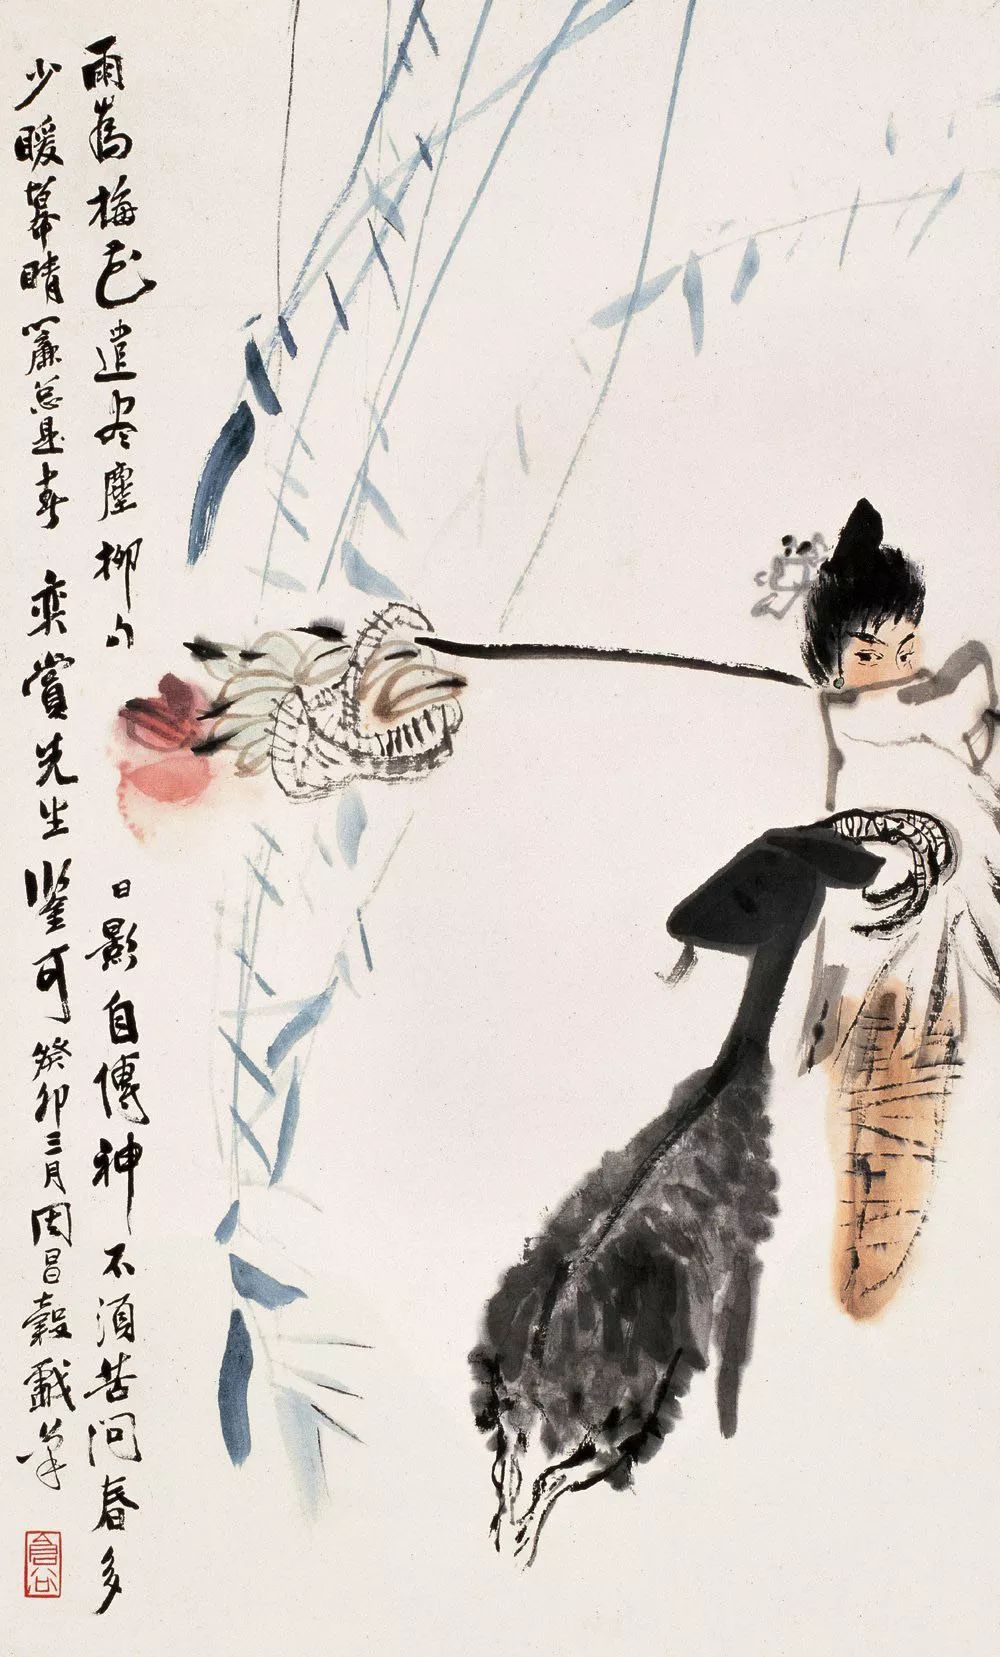 雨為梅花遣尽塵柳勾日影自傳神不須苦問春多
少暖幕晴簾总是春 奕賞先生鑒可 癸卯三月周昌穀戲筆